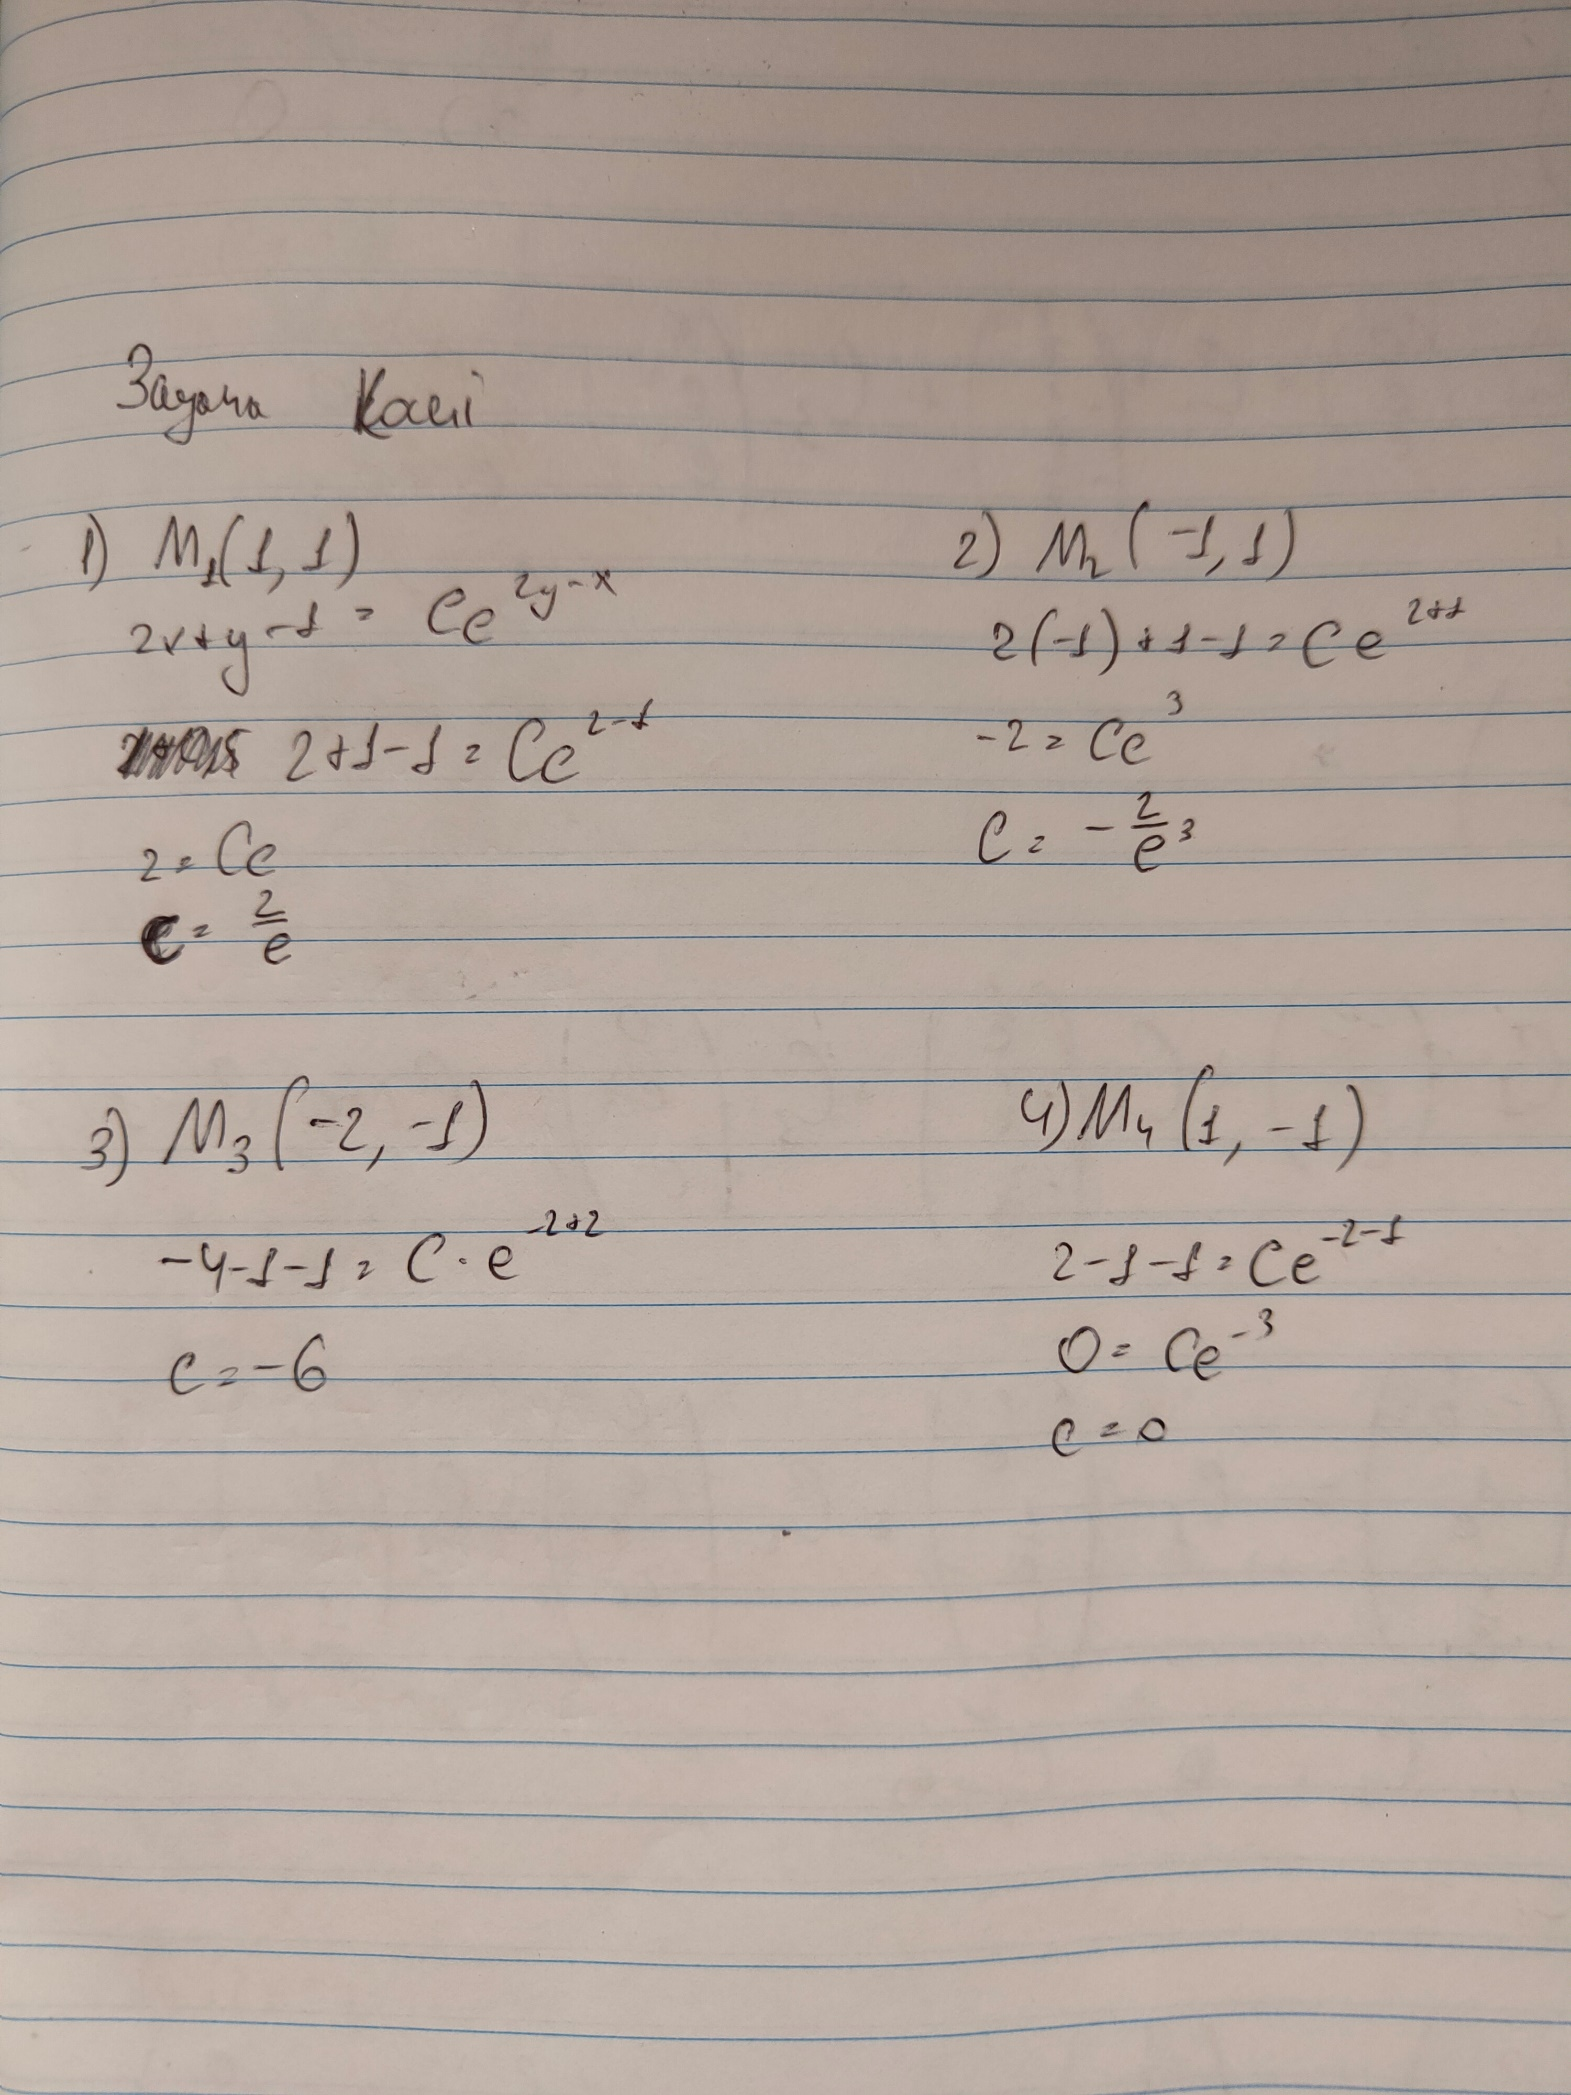 Задача Коші
1) M₁(1, 1)
2x+y-1 = Ce^{2y-x}
2+1-1 = Ce^{2-1}
2 = Ce
C = 2/e
2) M₂(-1, 1)
2(-1)+1-1 = Ce^{2+1}
-2 = Ce^3
C = -2/e^3
3) M₃(-2, -1)
-4-1-1 = C·e^{-2+2}
C = -6
4) M₄(1, -1)
2-1-1 = Ce^{-2-1}
0 = Ce^{-3}
C = 0